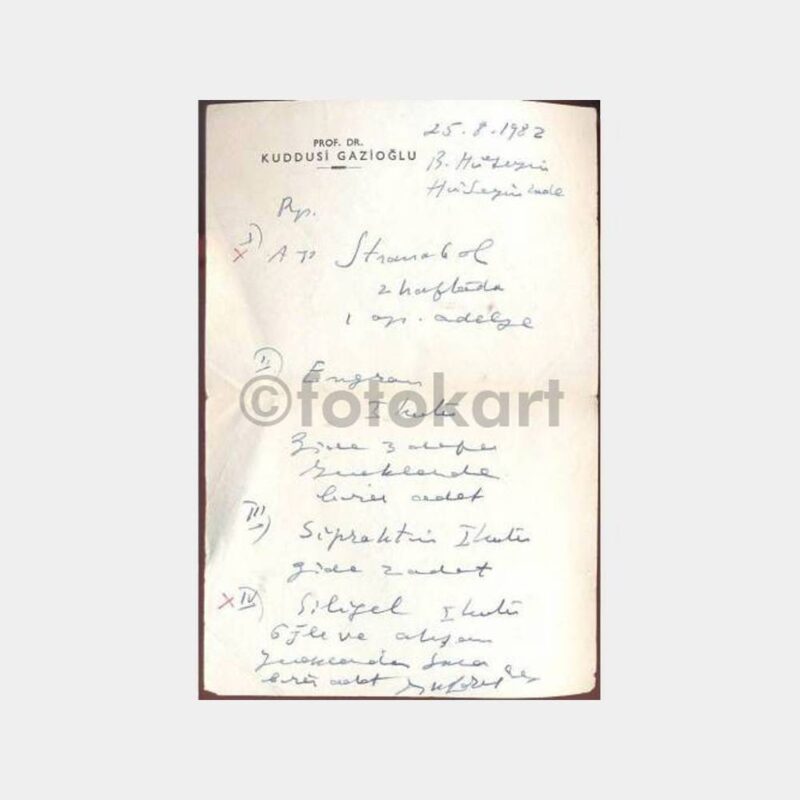 25.8.1982
PROF. DR.
KUDDUSİ GAZİOĞLU
B. Hüseyin
Hüseyinzade
Rp.
I)
x Stranabol
2 haftada
1 ap. adele
II) Engran
I kutu
©fotokart
Günde 3 defa
yemeklerde
birer adet
III) Sipraktin I kutu
günde 2 adet
x IV) Siligel I kutu
öğle ve akşam
yemeklerden sonra
birer adet